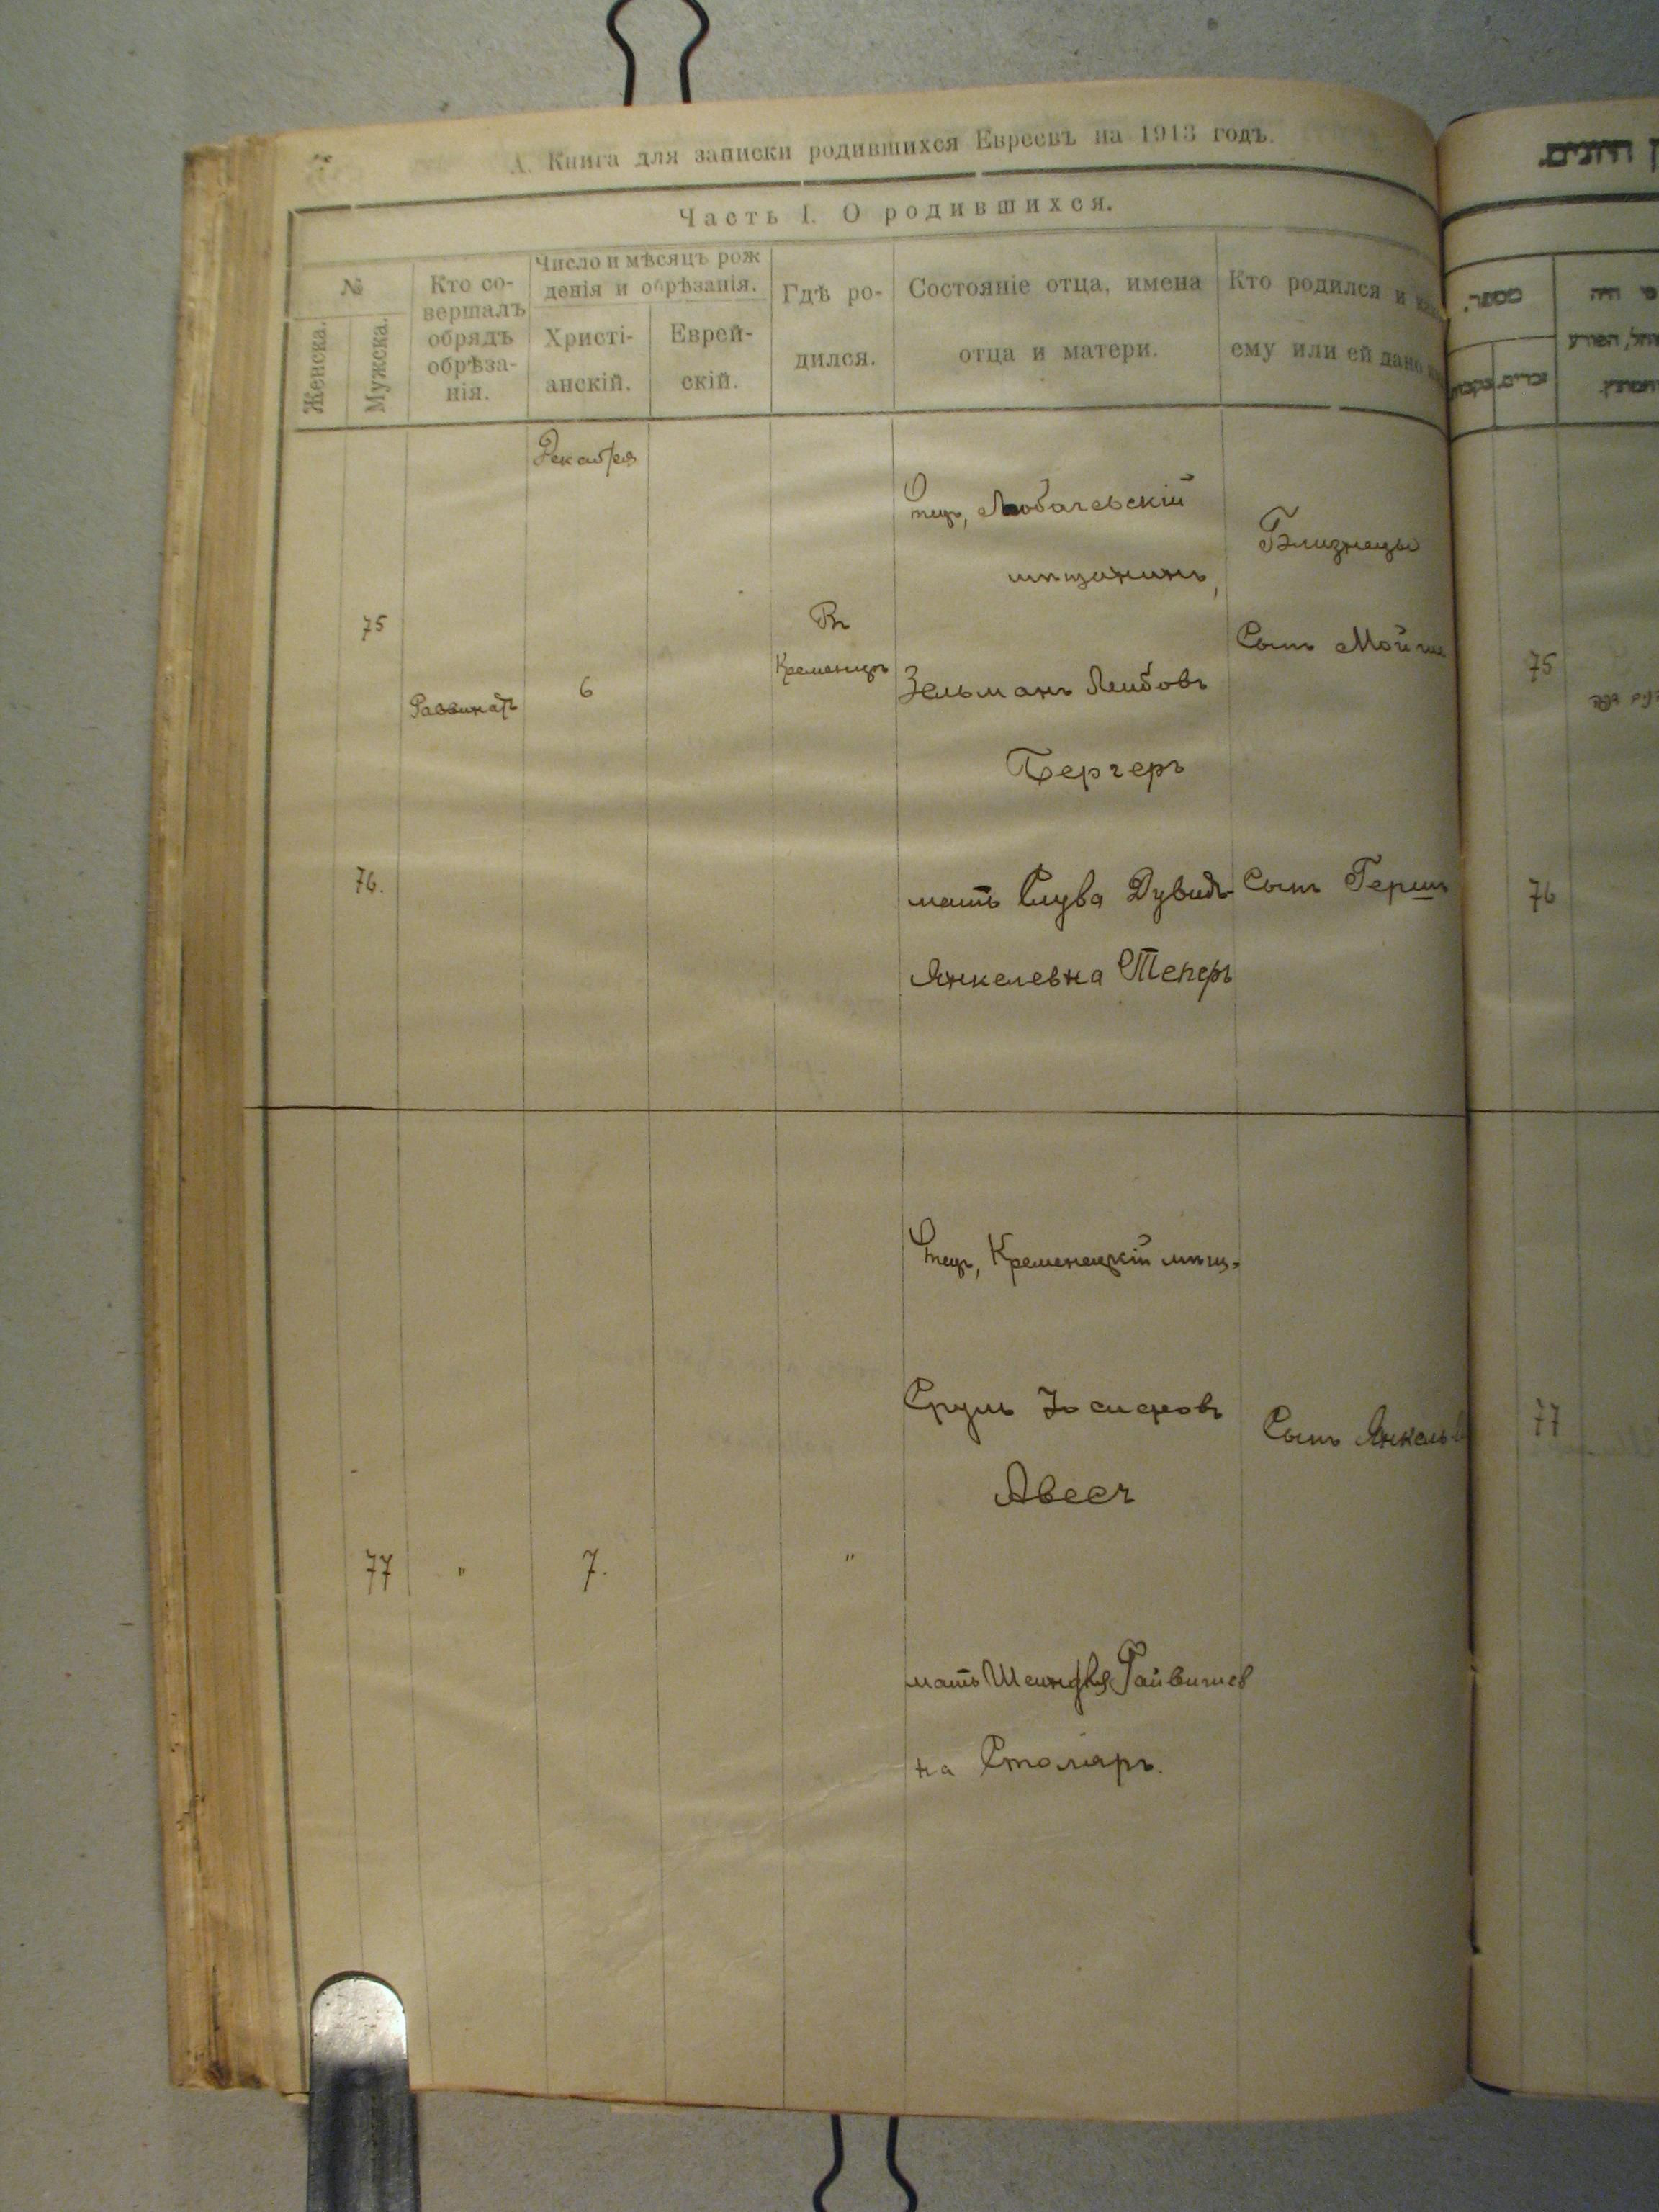 А. Книга для записки родившихся Евреевъ на 1913 годъ.
Часть I. О родившихся.
№
Женска.
Мужска.
Кто со-
вершалъ
обрядъ
обрѣза-
нія.
Число и мѣсяцъ рож
денія и обрѣзанія.
Христі-
анскій.
Еврей-
скій.
Гдѣ ро-
дился.
Состояніе отца, имена
отца и матери.
Кто родился и
ему или ей дано
Декабря
75
6
Въ
Кременцѣ
Отецъ, Любачевскій
мѣщанинъ,
Зельманъ Лейбовъ
Бергеръ
Близнецы
Сынъ Мойше
76.
мать Слува Дувидъ-
Янкелевна Теперъ
Сынъ Гершъ
77
"
7.
"
Отецъ, Кременецкій мѣщ.
Сруль Іосифовъ
Авесч
мать Шейндля Файвишев
на Столяръ.
Сынъ Янкель
75
76
77